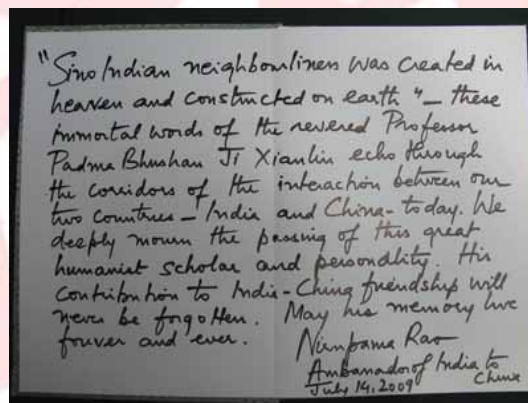 "Sino Indian neighbourliness was created in
heaven and constructed on earth" – these
immortal words of the revered Professor
Padma Bhushan Ji Xianlin echo through
the corridors of the interaction between our
two countries – India and China – today. We
deeply mourn the passing of this great
humanist scholar and personality. His
contribution to India-China friendship will
never be forgotten. May his memory live
forever and ever.
Nirupama Rao
Ambassador of India to
China
July 14, 2009